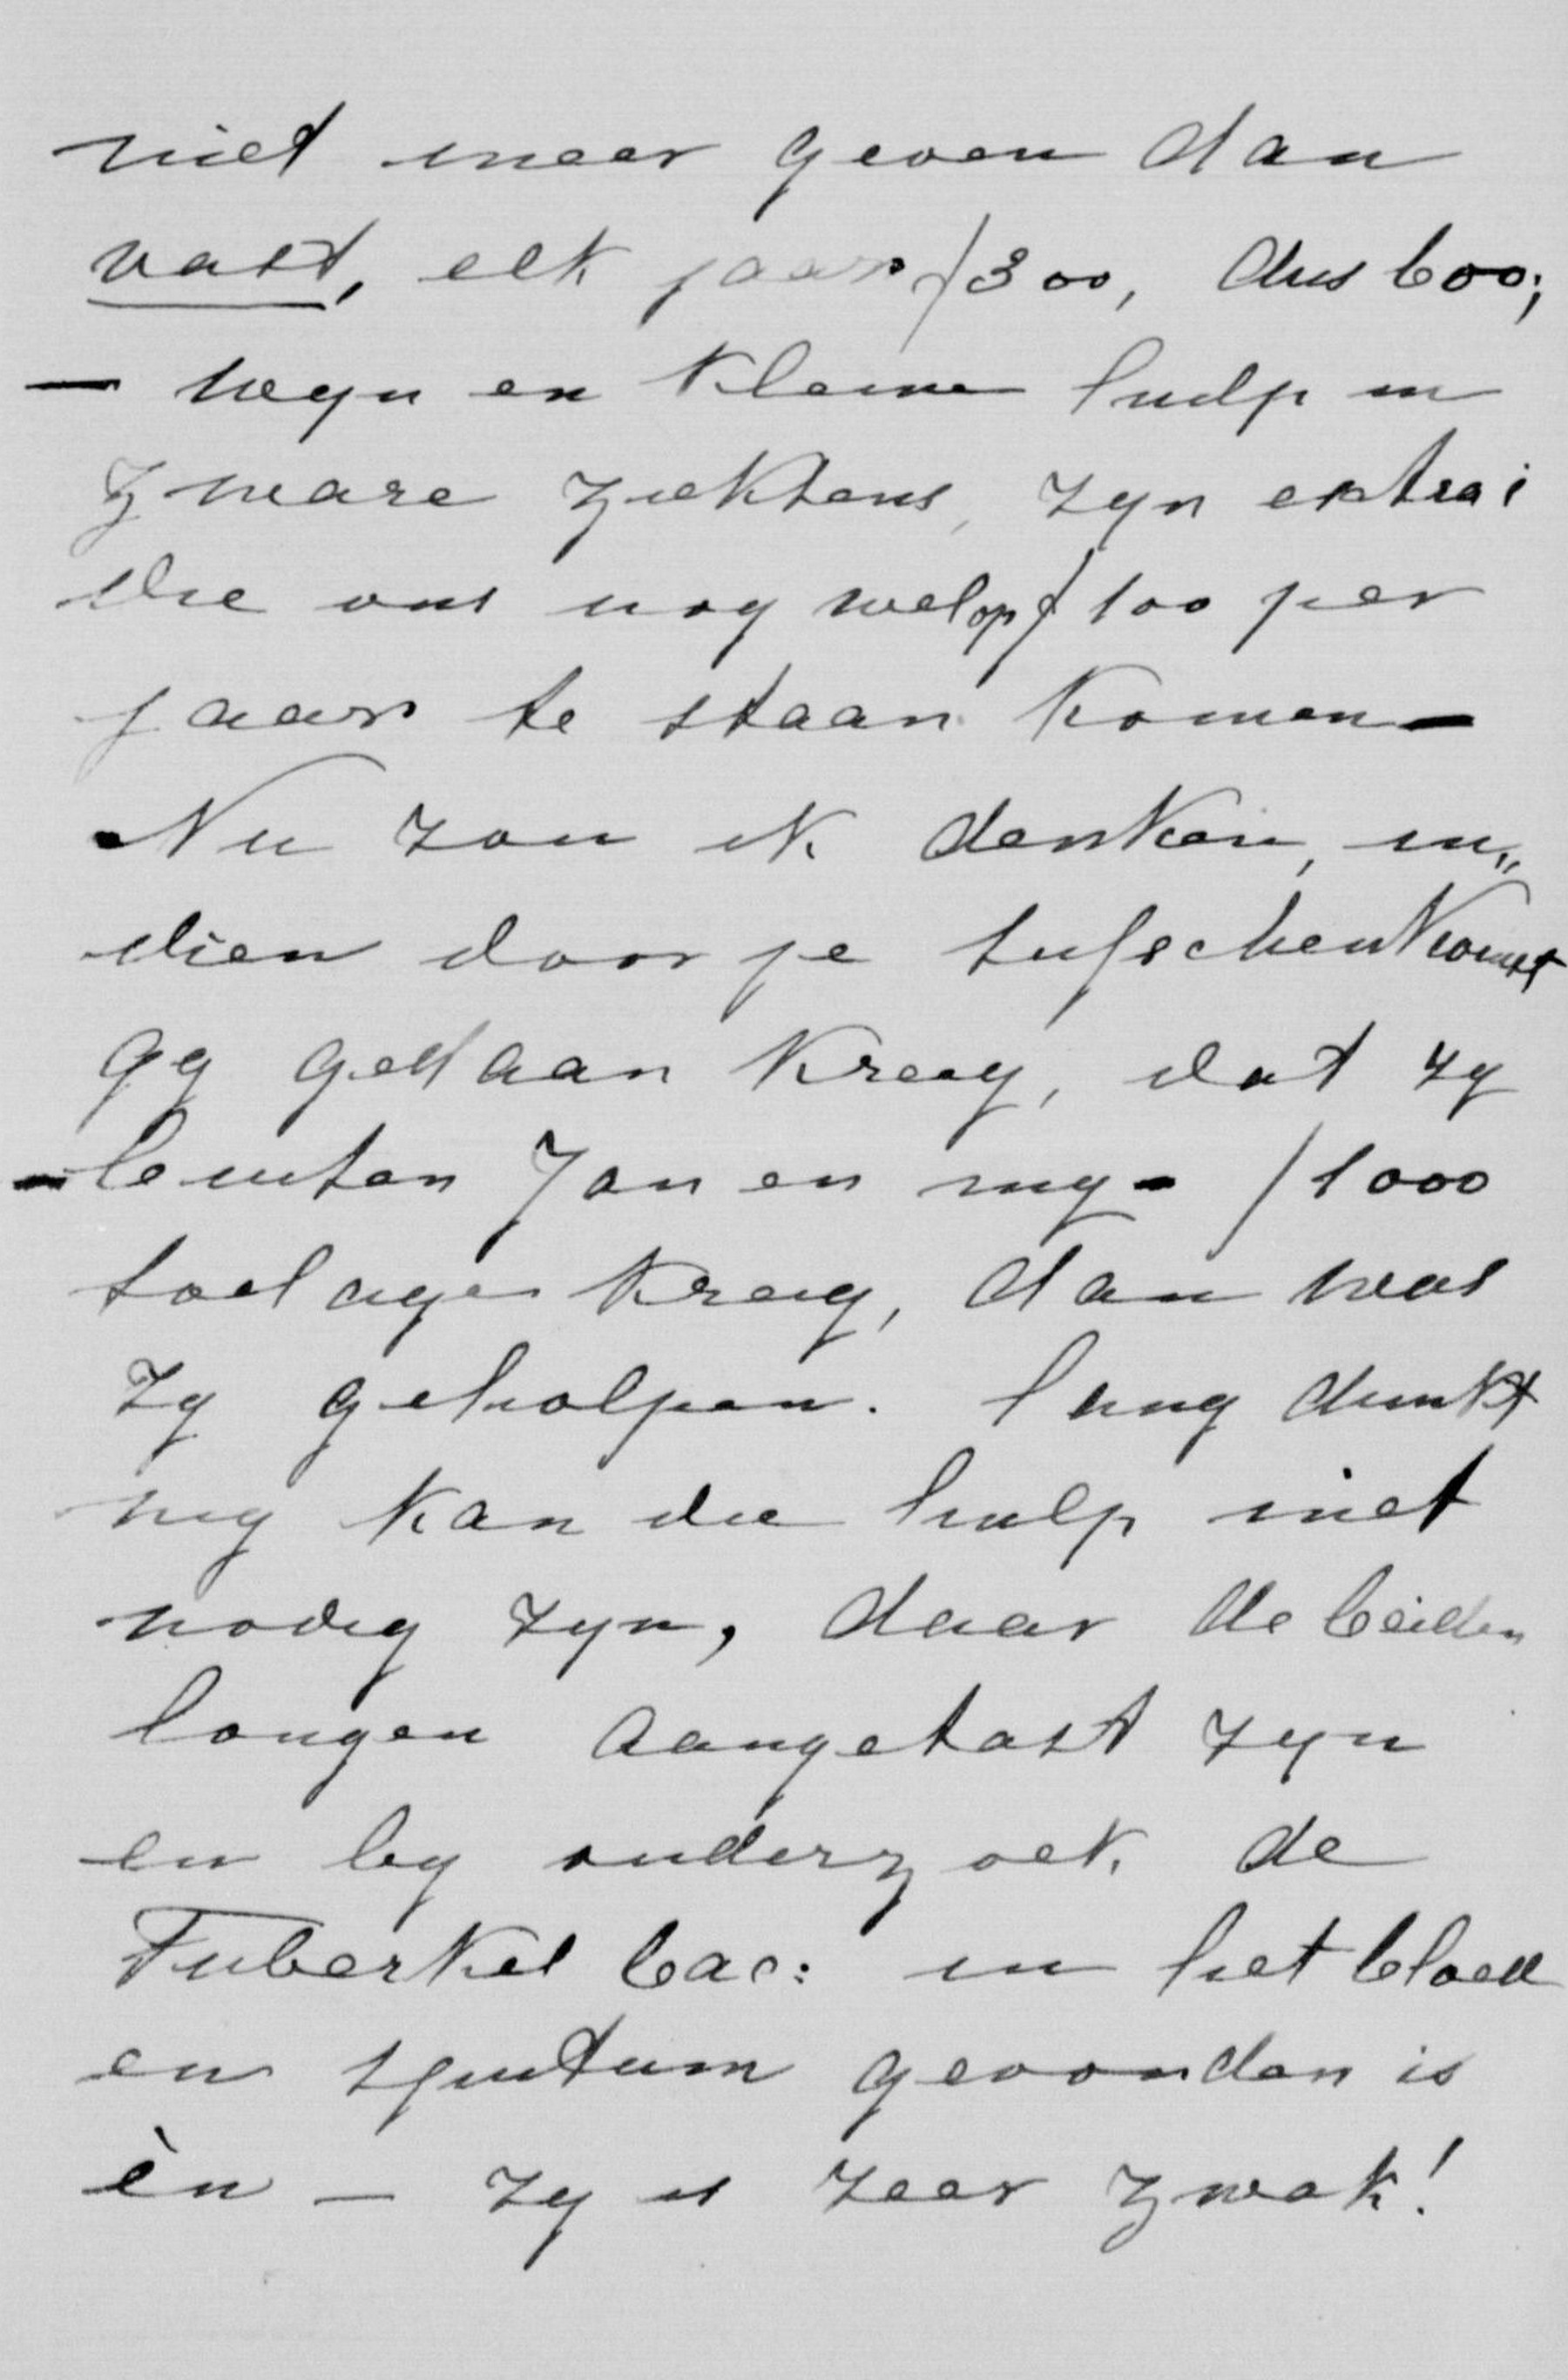 niet meer geven dan
vast, elk jaar ƒ300, dus 600;
— wyn en kleine hulp in
zware ziektens, zyn extra's
die ons nog wel op ƒ100 per
jaar te staan komen —
Nu zou ik denken, in„
dien door je tusschenkomst
gy gedaan kreeg, dat zy
- buiten Jan en my - ƒ1000
toelage kreeg, dan was
zy geholpen. Lang dunkt
my kan die hulp niet
nodig zyn, daar de beiden
longen aangetast zyn
en by onderzoek de
Tuberkel bac: in het bloed
en sputum gevonden is
èn — zy is zeer zwak!